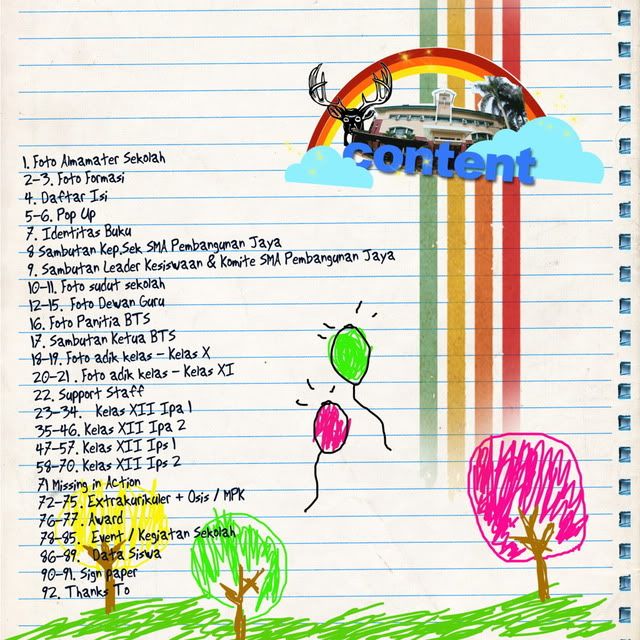 content
1. Foto Almamater Sekolah
2-3. Foto Formasi
4. Daftar Isi
5-6. Pop Up
7. Identitas Buku
8 Sambutan Kep,Sek SMA Pembangunan Jaya
9. Sambutan Leader Kesiswaan & Komite SMA Pembangunan Jaya
10-11. Foto sudut sekolah
12-15. Foto Dewan Guru
16. Foto Panitia BTS
17. Sambutan Ketua BTS
18-19. Foto adik kelas - Kelas X
20-21. Foto adik kelas - Kelas XI
22. Support Staff
23-34. Kelas XII Ipa 1
35-46. Kelas XII Ipa 2
47-57. Kelas XII Ips 1
58-70. Kelas XII Ips 2
71 Missing in Action
72-75. Extrakurikuler + Osis / MPK
76-77. Award
78-85. Event / Kegiatan Sekolah
86-89. Data Siswa
90-91. Sign paper
92. Thanks To